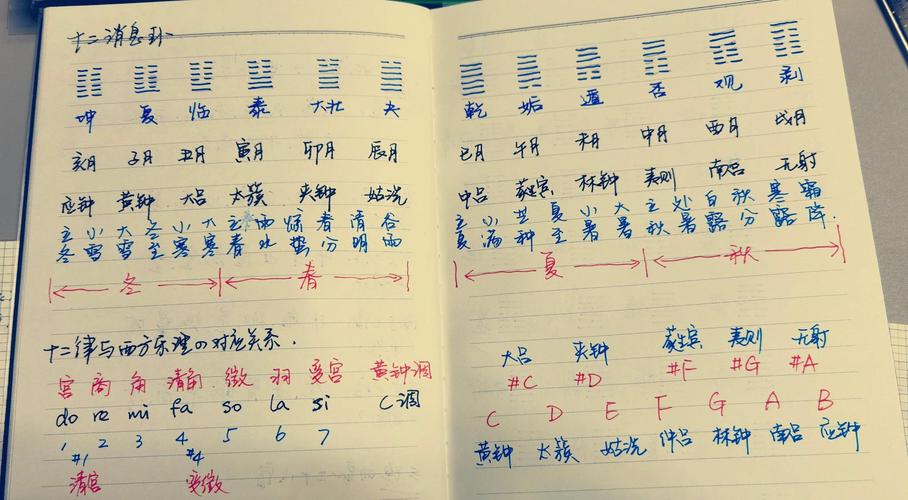 十二消息卦
坤 复 临 泰 大壮 夬
亥月 子月 丑月 寅月 卯月 辰月
应钟 黄钟 大吕 太簇 夹钟 姑洗
立小大冬小大立雨惊春清谷
冬雪雪至寒寒春水蛰分明雨
冬 春
十二律与西方乐理的对应关系.
宫 商 角 清角 徵 羽 变宫 黄钟调
do re mi fa so la si C调
1 2 3 4 5 6 7
#1 #4
清宫 变徵
乾 姤 遁 否 观 剥
巳月 午月 未月 申月 酉月 戌月
中吕 蕤宾 林钟 夷则 南吕 无射
立小芒夏小大立处白秋寒霜
夏满种至暑暑秋暑露分露降.
夏 秋
大吕 夹钟 蕤宾 夷则 无射
#C #D #F #G #A
C D E F G A B
黄钟 太簇 姑洗 仲吕 林钟 南吕 应钟